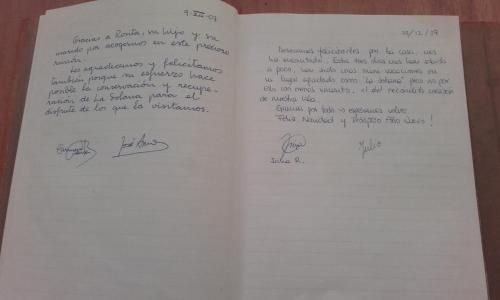 9-XII-07
Gracias a Ronta, su hijo y su
marido por acogernos en este precioso
rincón.
Les agradecemos y felicitamos
también porque su esfuerzo hace
posible la conservación y recupe-
ración de La Solana para el
disfrute de los que la visitamos.
José
22/12/07
Deseamos felicitarles por la casa, nos
ha encantado. Estos tres días nos han sabido
a poco, han sido unas mini vacaciones en
un lugar apartado como La Solana pero no por
ello con menos encanto, el del recóndito corazón
de nuestra isla.
Gracias por todo y esperamos volver.
Feliz Navidad y Próspero Año Nuevo!
Julio
R.